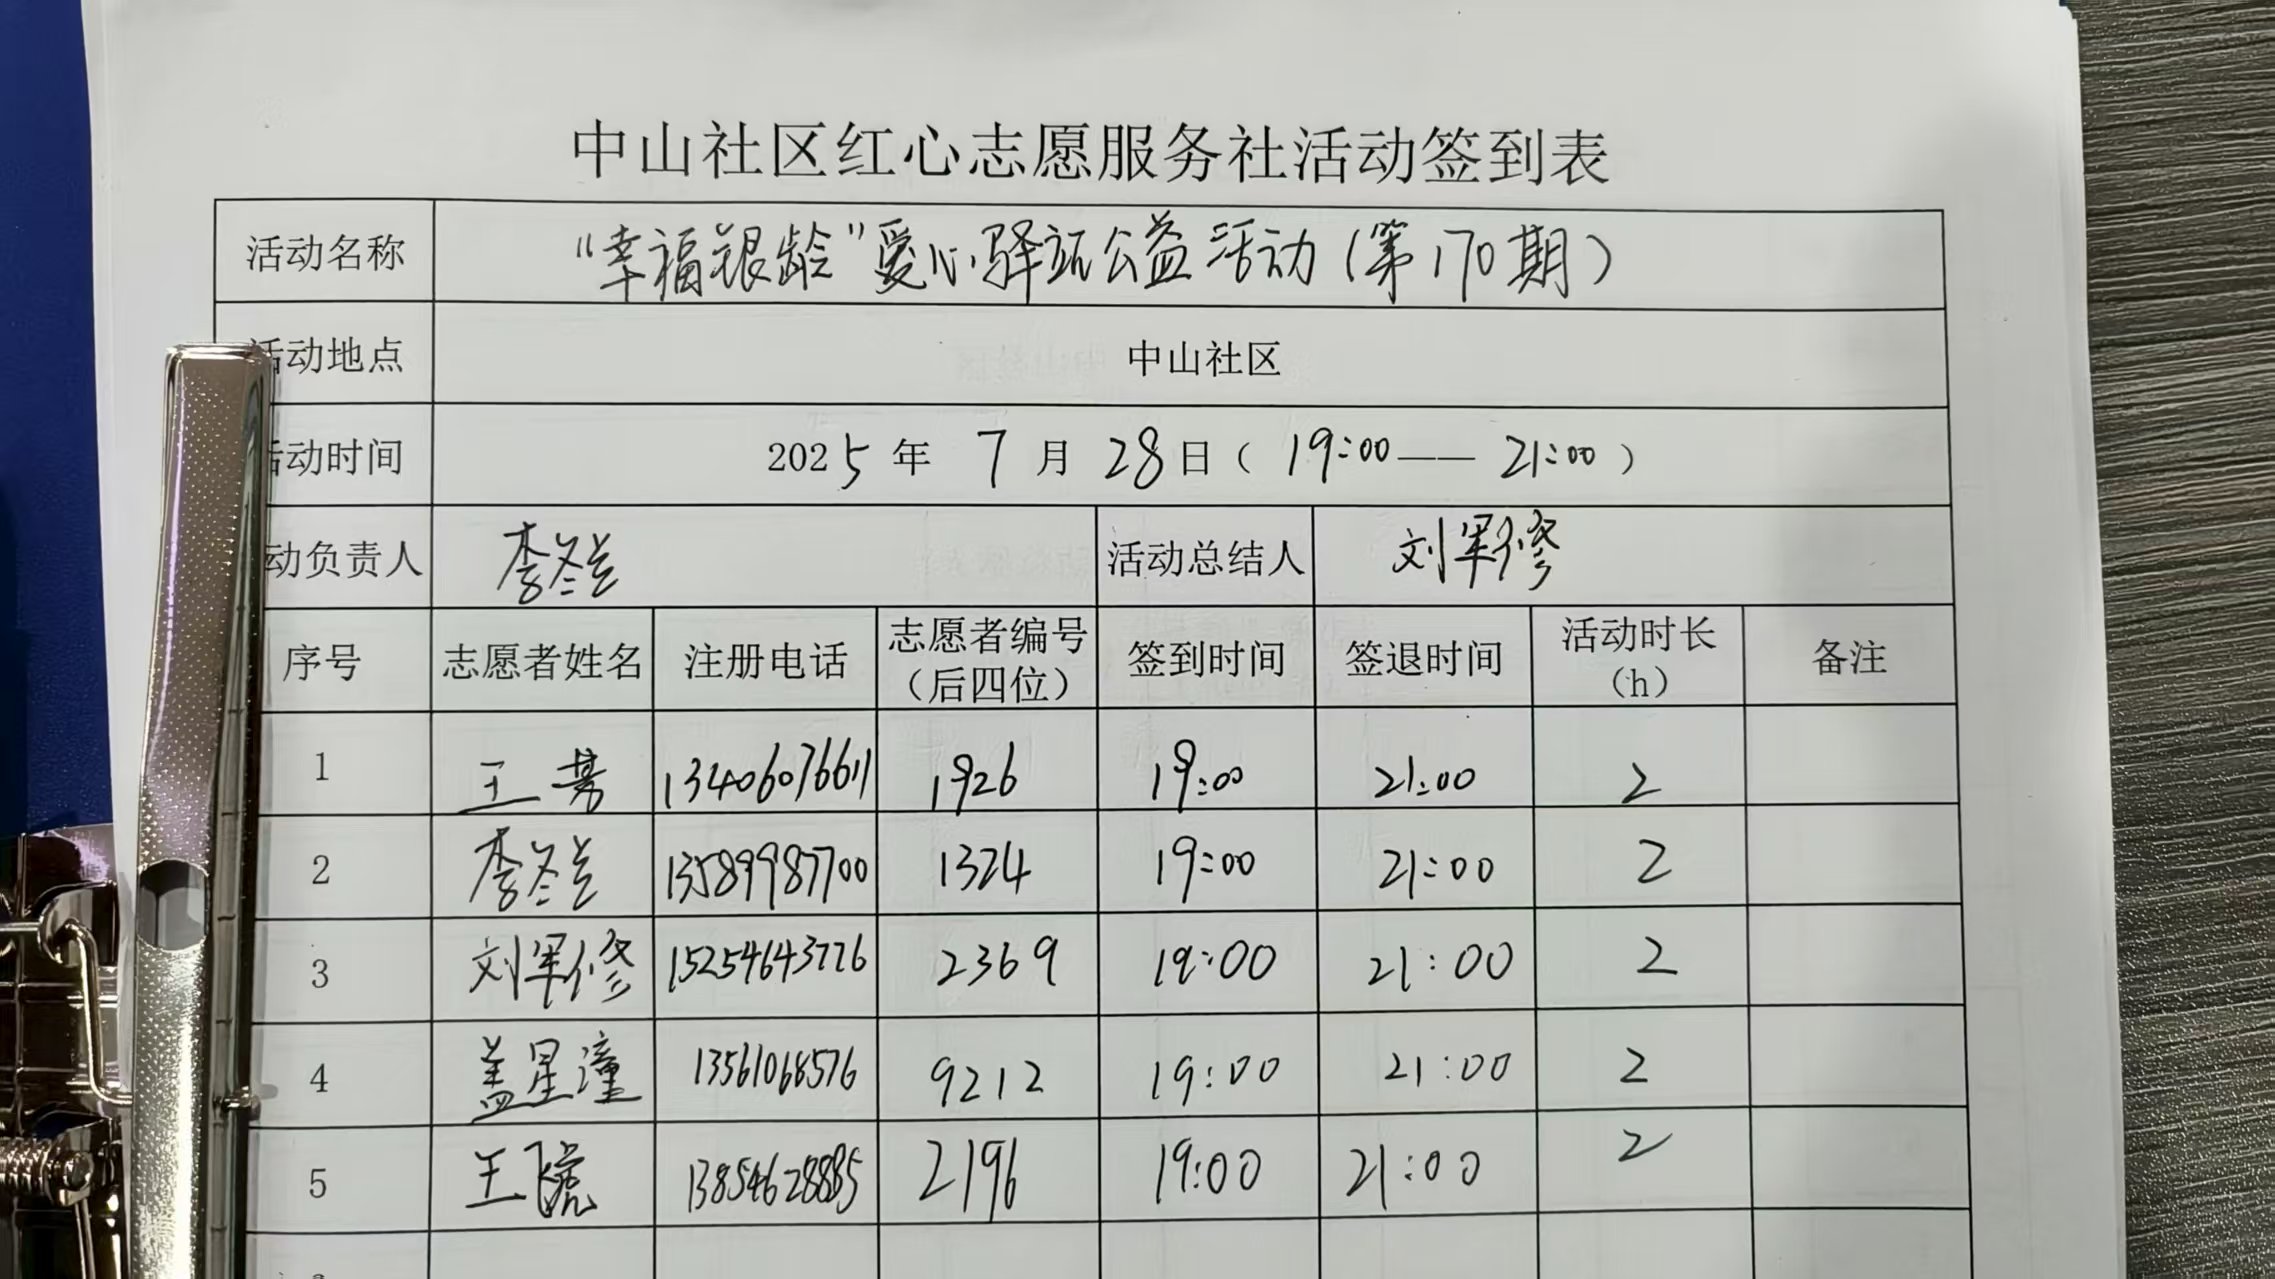 中山社区红心志愿服务社活动签到表
活动名称 “幸福银龄”爱心驿站公益活动(第170期)
活动地点 中山社区
活动时间 2025年 7月 28日( 19:00—— 21:00 )
动负责人 李冬兰 活动总结人 刘军修
序号 志愿者姓名 注册电话 志愿者编号(后四位) 签到时间 签退时间 活动时长(h) 备注
1 王 13406076611 1926 19:00 21:00 2
2 李冬兰 13589987700 1324 19:00 21:00 2
3 刘军修 15254643776 2369 19:00 21:00 2
4 盖星潼 13561068576 9212 19:00 21:00 2
5 王飞虎 13854628885 2196 19:00 21:00 2